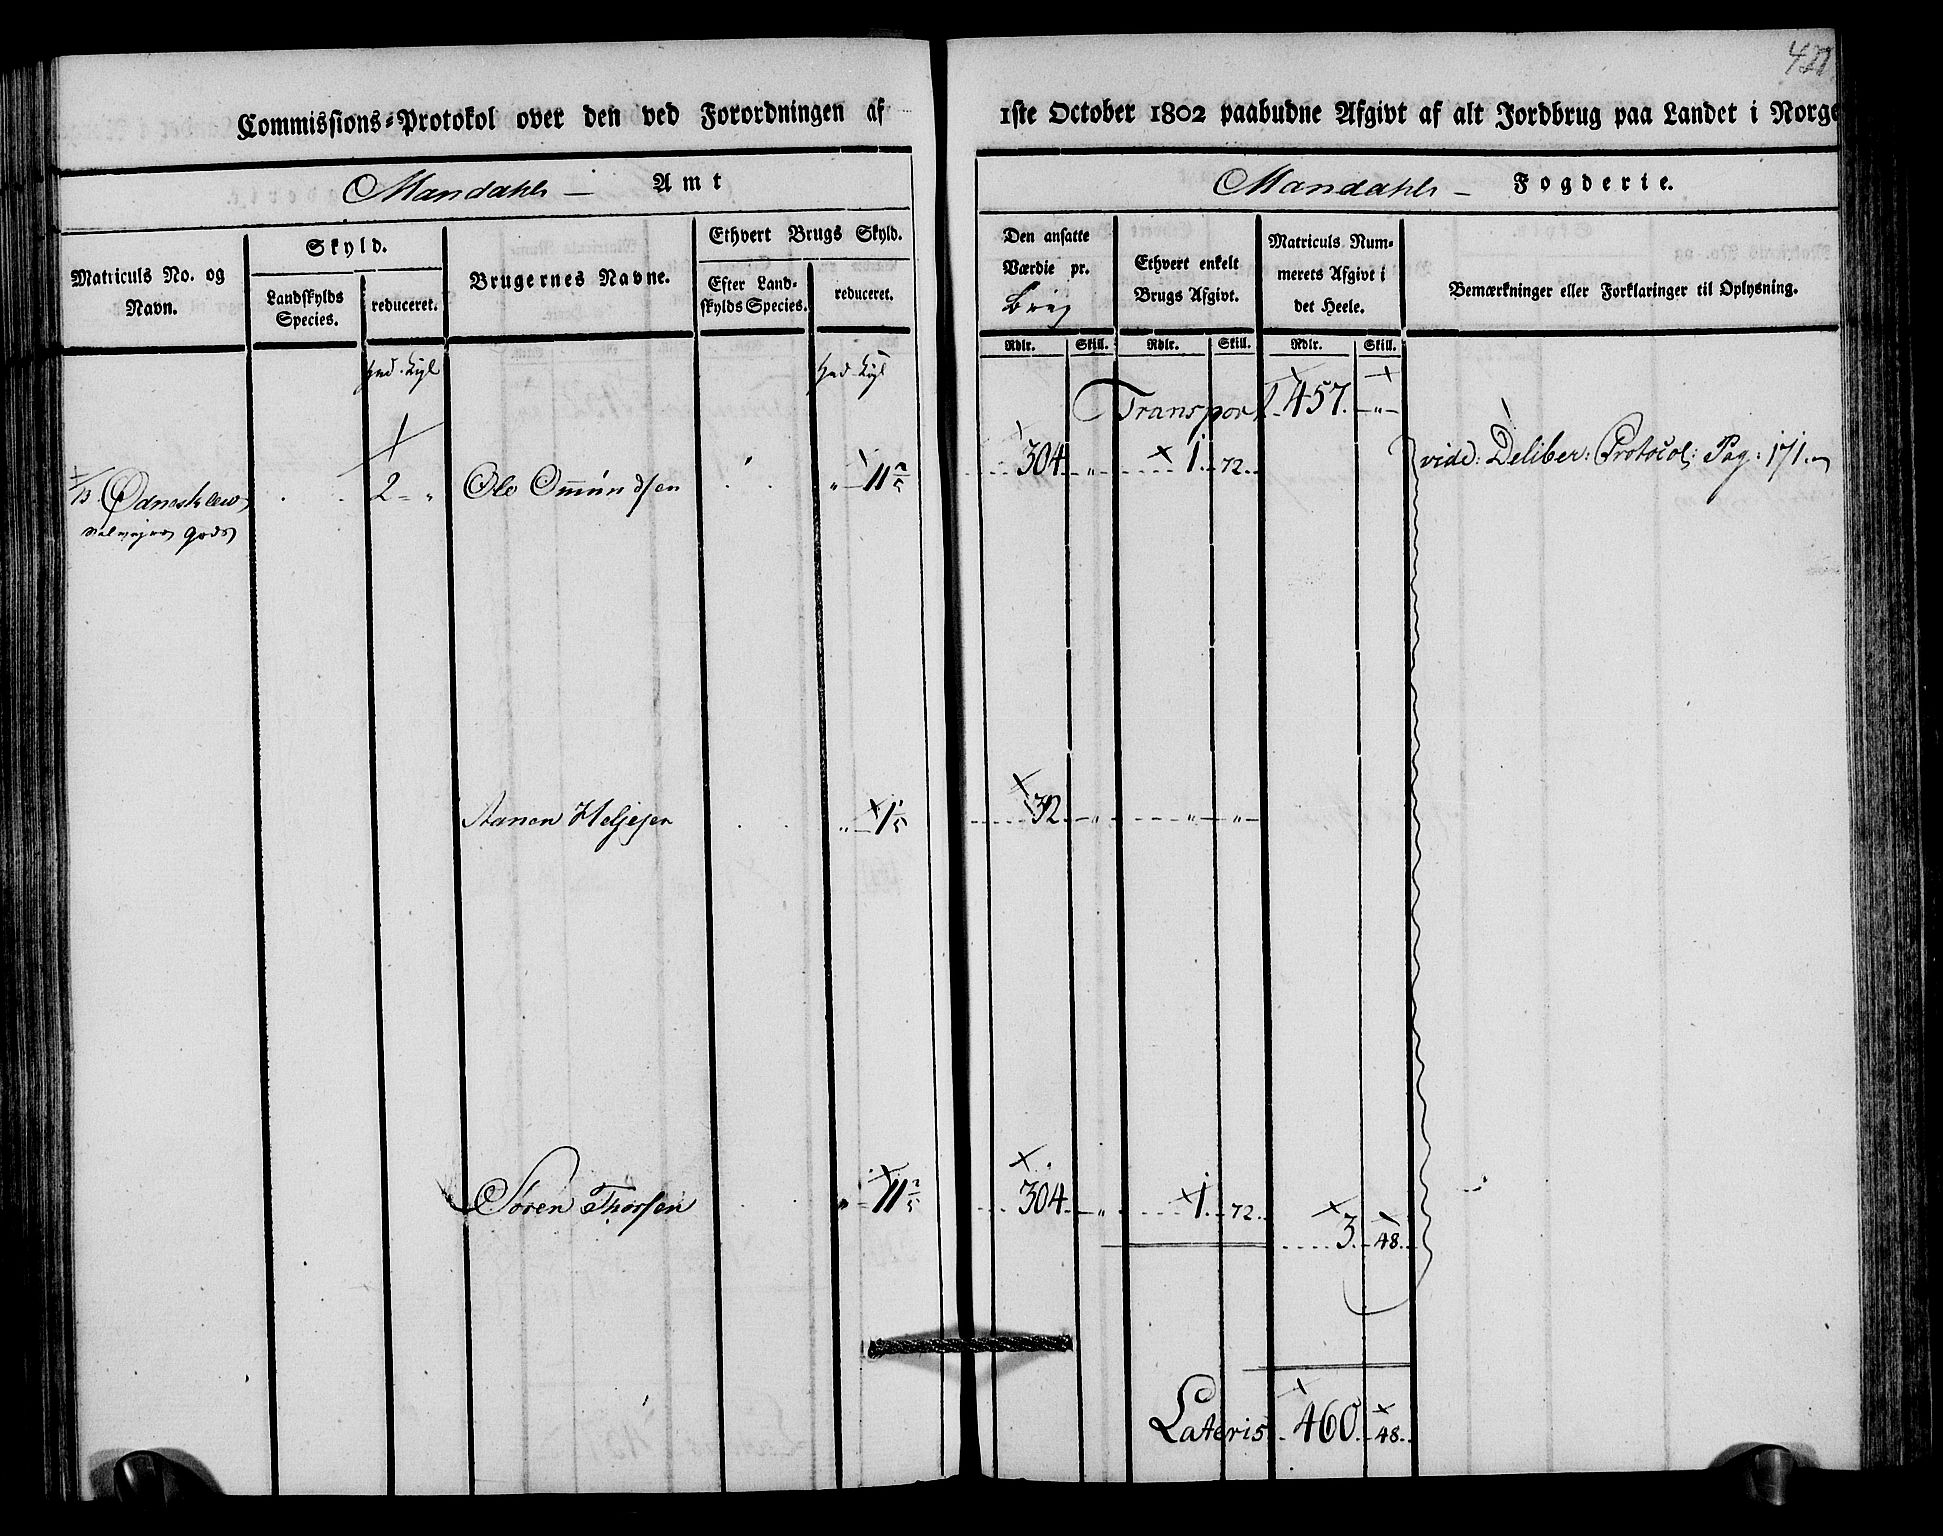 421
Commissions-Protokol over den ved Forordningen af 1ste October 1802 paabudne Afgivt af alt Jordbrug paa Landet i Norge
Mandahls Amt
Mandahls Fogderie.
Matriculs No. og Navn.
Skyld.
Landskylds Species.
reduceret.
Brugernes Navne.
Ethvert Brugs Skyld.
Efter Landskylds Species.
reduceret.
Den ansatte Værdie pr. Brug
Ethvert enkelt Brugs Afgivt.
Matriculs Nummerets Afgivt i det Heele.
Bemærkninger eller Forklaringer til Oplysning.
Rdlr. Skill. Rdlr. Skill. Rdlr. Skill.
Hud. Kigl
Hud Kigl
Transport 457. - „ -
2 - „ Ole Omundsen „ 11 2/5 304 „ 1. 72. vide: Deliber: Protocol: Pag: 171.
gods
Aanen Heljesen „ 1 1/5 32 „ „ „
Søren Thorsen „ 11 2/5 304 „ 1. 72. 3. 48.
Lateris 460. 48.